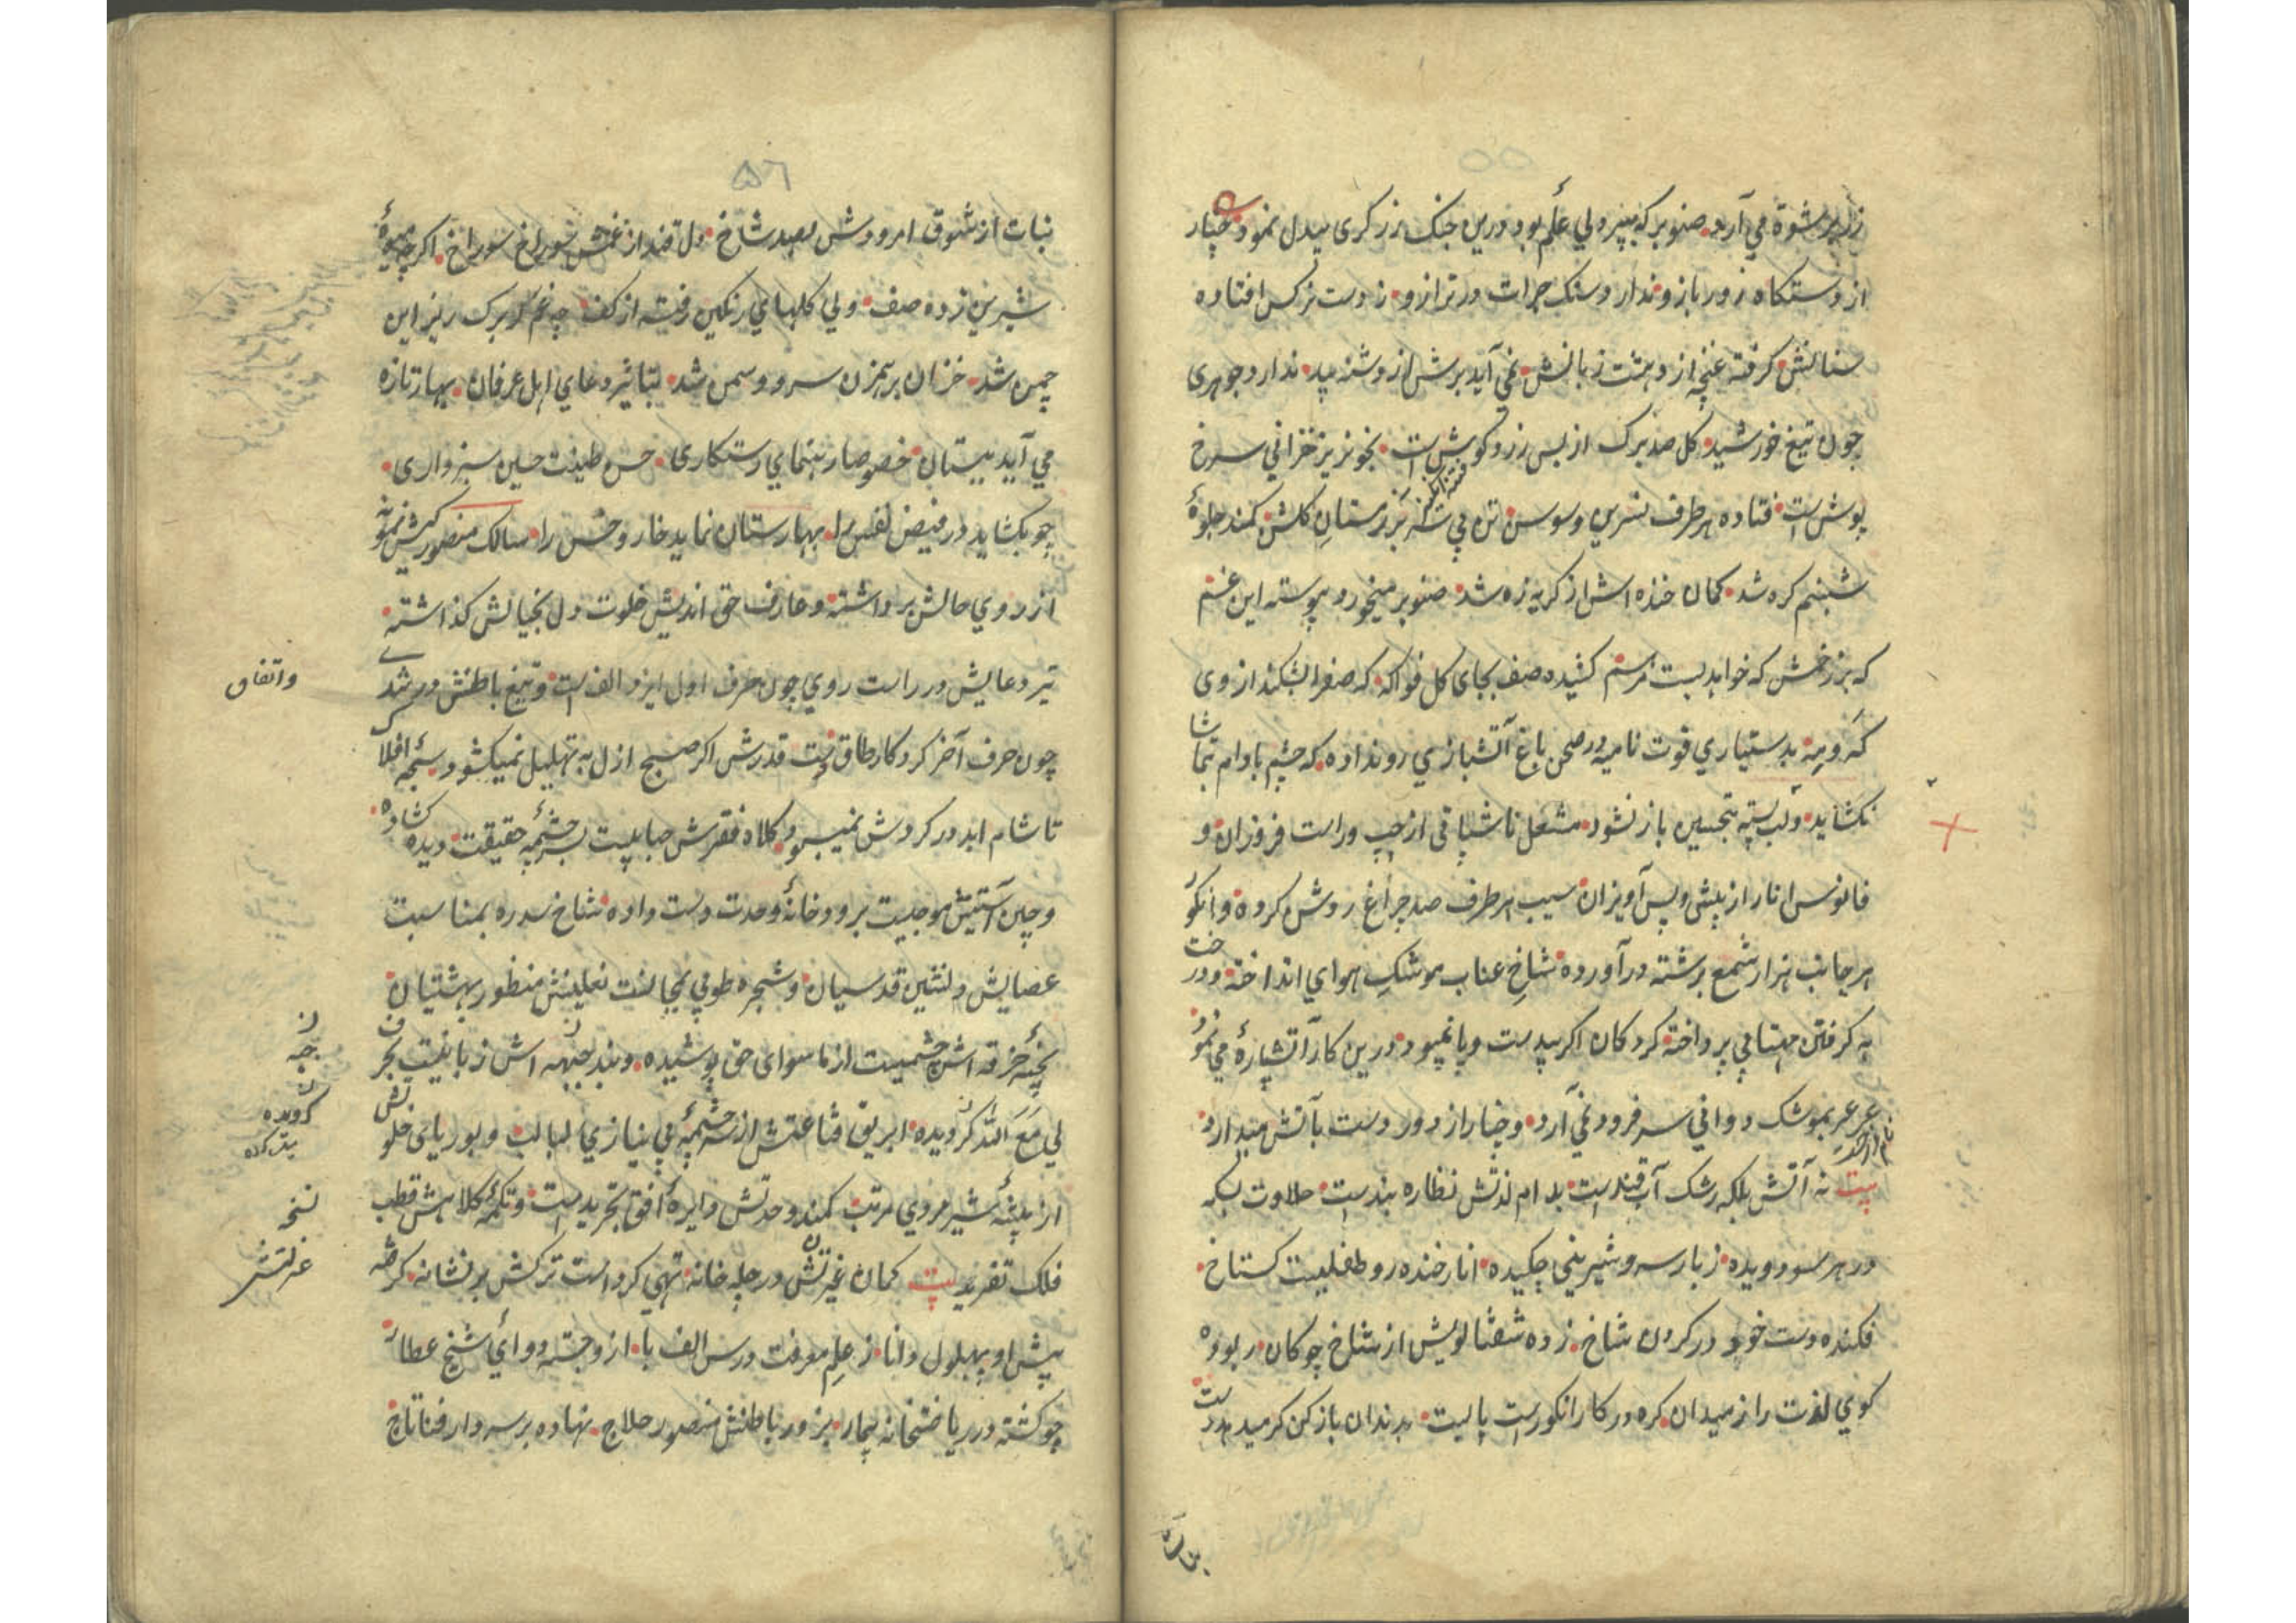 ۵۵
زر برشوة می آرد صنوبر که بپیر ولي علم بود درین جنک زرکری بیدل نمود چنار
از دستکاه زور بازو ندارد سنک جرات در ترازو ز دست نرکس افتاده
سنانش کرفته غنچه از دهشت زبانش نمي آید برش از دشنه بید ندارد جوهری
چون تیغ خورشید کل صدبرک از بس زرد کوش است بخونریز خزاني سرخ
پوش است فتاده هر طرف نسرین و سوسن تن بي سر بزرستان کلشن کمند جلوۀ
شبنم کره شد کمان خنده اش از کریه زه شد صنوبر میخورد پیوسته این غم
که بر زخمش که خواهد بست مرهم کشیده صف بجای کل فواکه که صفرا بشکند از وی
که و مه بدستیاري قوت نامیه در صحن باغ آتشبازي رو نداده که چشم بادام تماشا
نکشاید و لب پسته بتحسین باز نشود مشعل ناشپاتی از چپ و راست فروزان و
فانوس انار از پیش و پس آویزان سیب هر طرف صد چراغ روشن کرده و انکور
هر جانب هزار شمع برشته درآورده شاخ عناب موشک هوای انداخته و درخت
به کرفتن مهتابي پرداخته کردکان اکر بیدست و پا نمیبود درین کار آتشپارۀ می نمود
عرعر بموشک دوانی سر فرود نمي آرد و چنار از دور دست بآتش میدارد
بیت نه آتش بلکه رشک آب قندست بدام لذتش نظاره بندست حلاوت بسکه
در هر سو دویده ز بارسر و شیریني چکیده انار خنده رو طفلیست کستاخ
فکنده دست خود در کردن شاخ زده شفتالویش از شاخ چوکان ربوده
کوي لذت را ز میدان کره در کار انکورست پا بست بدندان باز کن کر میدهد دست
نبات
۵۶
نبات از شوق امرودش بصد شاخ دل قند از غمش سوراخ سوراخ اکرچه میوۀ
شیرین زده صف ولي کلهاي رنکین رفته از کف چه غم کر برک ریز این
چمن شد خزان برهمزن سرو و سمن شد بتاثیر دعاي اهل عرفان بهار تازه
مي آید ببستان خصوصا رهنماي رستکاری حسن طینت حسین سبزواری
چو بکشاید در فیض نفس را بهارستان نماید خار و خس را سالک منصور کیش نمونه
از روي حالش برداشته و عارف حق اندیش خلوت دل بخیالش کذاشته
تیر دعایش در راست روي چون حرف اول ایزد الف است و تیغ باطنش در شدت
چون حرف آخر کردکار طاق نیست قدرش اکر صبح ازل به تهلیل نمیکشود سبحه افلاک
تا شام ابد در کردش نمیبود کلاه فقرش حبابیست بر چشمه حقیقت دیده کشاده
و چین آستینش موجیست بر رودخانۀ وحدت دست داده شاخ سدره بمناسبت
عصایش دلنشین قدسیان و شجره طوبي بمجالست نعلینش منظور بهشتیان
بخیۀ خرقه اش چشمیست از ما سوای حق پوشیده و بند جبهه اش زبانیست بحرف
لي مع الله کرویده ابریق قناعتش از سرچشمۀ بي نیازي لبالب و بوریای خلوتش
از بیشۀ شیر مردي مرتب کمند وحدتش دایرۀ افق تجریدست و تکمۀ کلاهش قطب
فلک تفرید بیت کمان غیرتش در چله خانه تهی کردست ترکش بر نشانه کرفته
پیش او بهلول دانا ز علم معرفت درس الف با ازو جسته دوائ شیخ عطار
چو کشته در ریاضتخانه بیمار بزور باطنش منصور حلاج نهاده بر سر دار فنا تاج
واتفاق
جبه
کرویده
نسخه
عزلتش